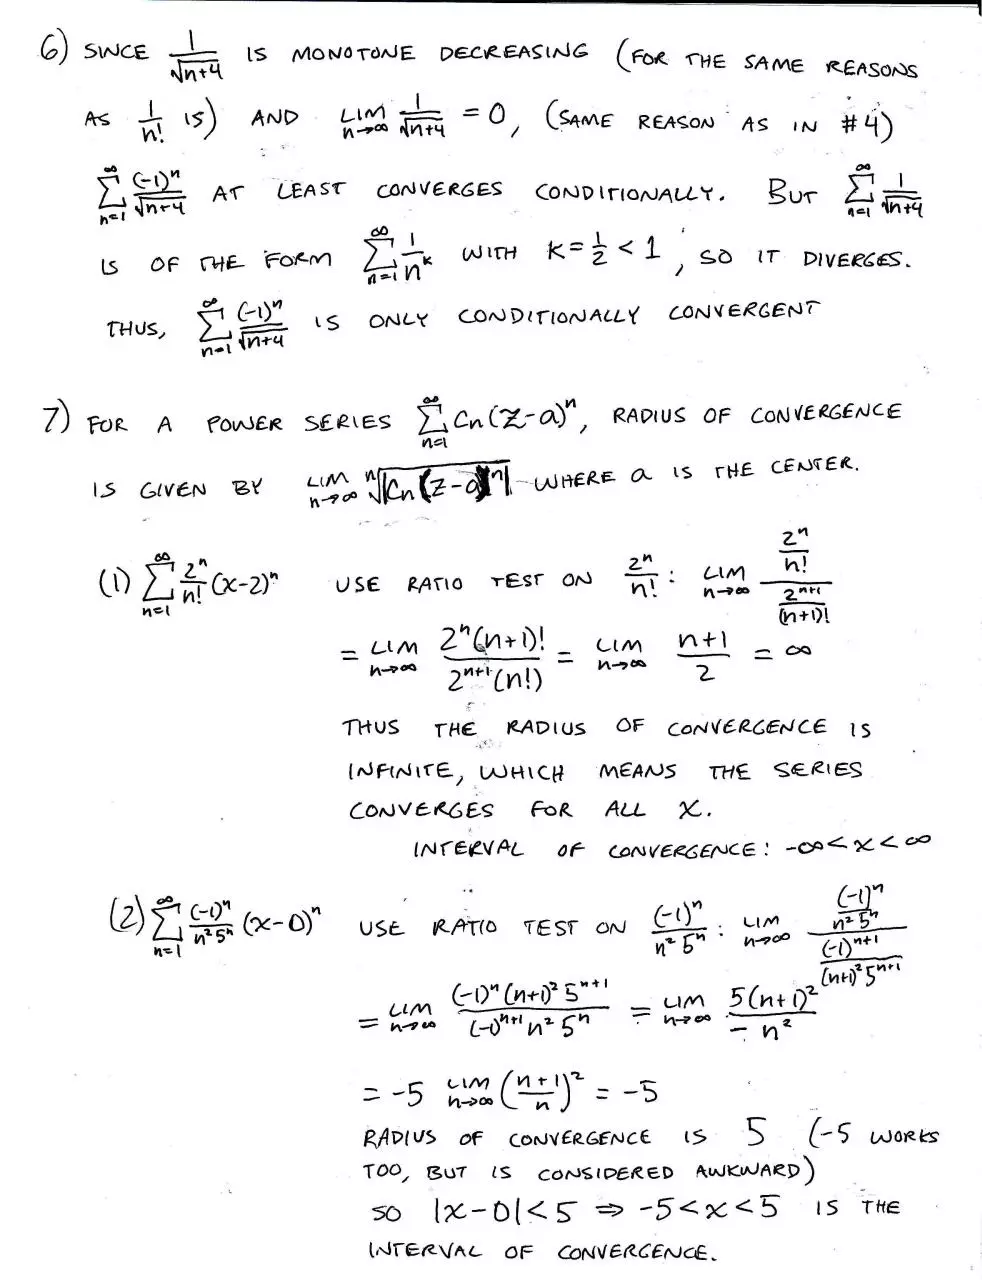 6) SINCE 1/√(n+4) IS MONOTONE DECREASING (FOR THE SAME REASONS
AS 1/n! IS) AND LIM n→∞ 1/√(n+4) = 0, (SAME REASON AS IN #4)
∑_{n=1}^{∞} (-1)^n/√(n+4) AT LEAST CONVERGES CONDITIONALLY. BUT ∑_{n=1}^{∞} 1/√(n+4)
IS OF THE FORM ∑_{n=1}^{∞} 1/n^k WITH K = 1/2 < 1, SO IT DIVERGES.
THUS, ∑_{n=1}^{∞} (-1)^n/√(n+4) IS ONLY CONDITIONALLY CONVERGENT
7) FOR A POWER SERIES ∑_{n=1}^{∞} Cn(Z-a)^n, RADIUS OF CONVERGENCE
IS GIVEN BY LIM n→∞ ⁿ√|Cn(Z-a)^n| WHERE a IS THE CENTER.
(1) ∑_{n=1}^{∞} 2^n/n! (x-2)^n USE RATIO TEST ON 2^n/n! : LIM n→∞ (2^n/n!)/(2^{n+1}/(n+1)!)
= LIM n→∞ 2^n(n+1)!/2^{n+1}(n!) = LIM n→∞ (n+1)/2 = ∞
THUS THE RADIUS OF CONVERGENCE IS
INFINITE, WHICH MEANS THE SERIES
CONVERGES FOR ALL X.
INTERVAL OF CONVERGENCE: -∞<x<∞
(2) ∑_{n=1}^{∞} (-1)^n/n²5^n (x-0)^n USE RATIO TEST ON (-1)^n/n²5^n : LIM n→∞ ((-1)^n/n²5^n)/((-1)^{n+1}/(n+1)²5^{n+1})
= LIM n→∞ (-1)^n(n+1)²5^{n+1}/(-1)^{n+1}n²5^n = LIM n→∞ 5(n+1)²/-n²
= -5 LIM n→∞ ((n+1)/n)² = -5
RADIUS OF CONVERGENCE IS 5 (-5 WORKS
TOO, BUT IS CONSIDERED AWKWARD)
SO |x-0|<5 ⇒ -5<x<5 IS THE
INTERVAL OF CONVERGENCE.